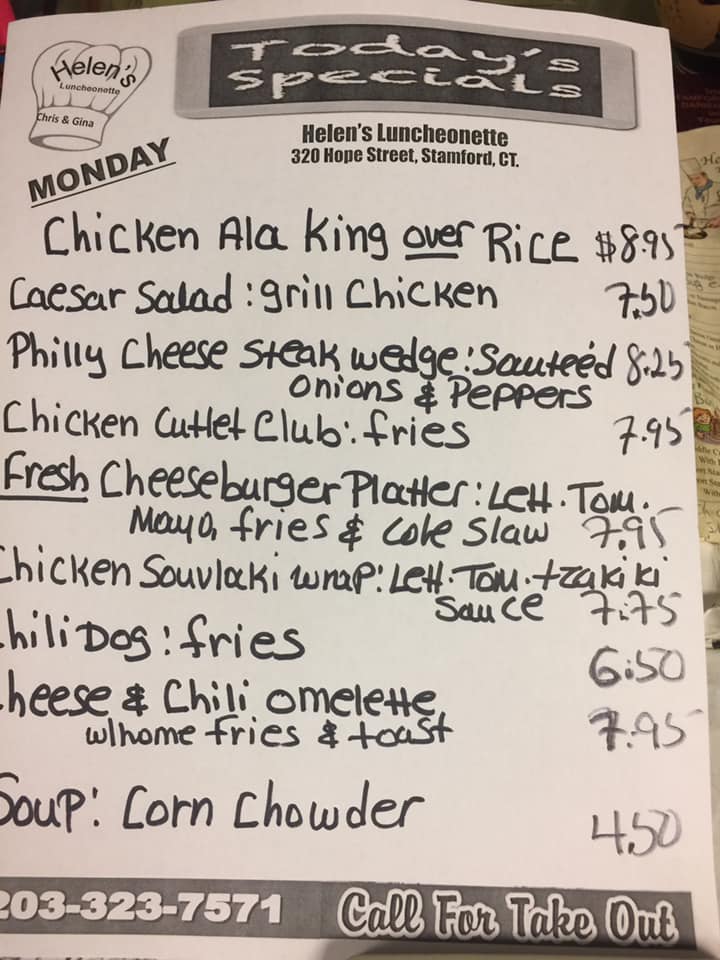 Helen's
Luncheonette
Chris & Gina
Today's
Specials
Helen's Luncheonette
320 Hope Street, Stamford, CT.
MONDAY
Chicken Ala King over Rice $8.95
Caesar Salad : grill Chicken 7.50
Philly Cheese Steak wedge : Sauteéd 8.25
onions & Peppers
Chicken Cutlet Club : fries 7.95
Fresh Cheeseburger Platter : Lett. Tom.
Mayo, fries & Cole Slaw 7.95
Chicken Souvlaki wrap : Lett. Tom. tzakiki
Sauce 7.75
hili Dog : fries 6.50
heese & Chili omelette
w/home fries & toast 7.95
Soup : Corn Chowder 4.50
203-323-7571 Call For Take Out